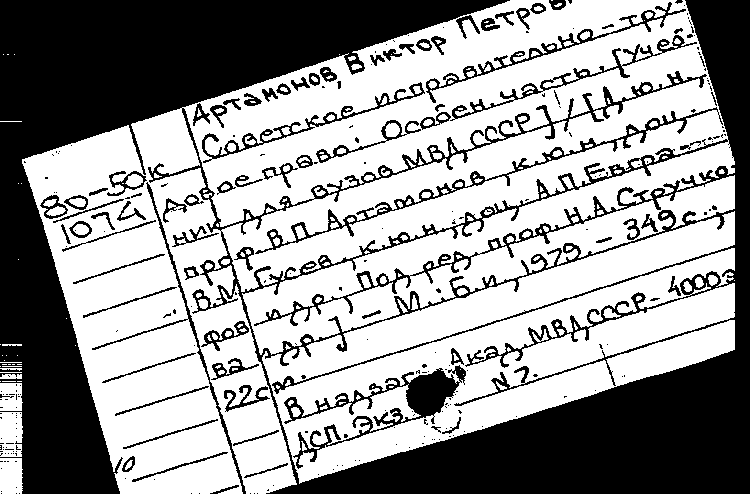 Артамонов, Виктор Петров
Советское исправительно-тру-
80-50к довое право: Особен. часть. [Учеб-
1074 ник для вузов МВД СССР] / [Д.ю.н.,
проф. В.П. Артамонов, к.ю.н., доц.
В.М. Гусев, к.ю.н., доц. А.П. Евгра-
фов и др.; Под ред. проф. Н.А. Стручко-
ва и др.]. - М.: Б.и., 1979. - 349с.;
22см.
В надзаг.: Акад. МВД СССР. - 4000э
ДСП. Экз. N 7.
10